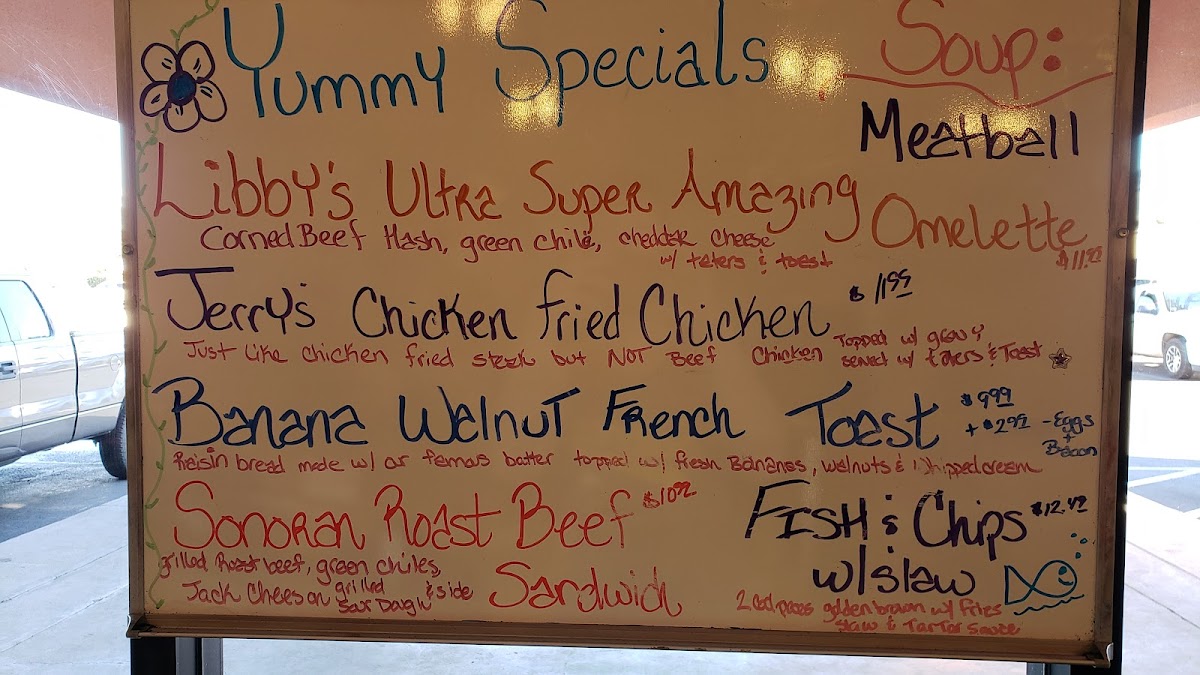 Yummy Specials
Soup:
Meatball
Libby's Ultra Super Amazing Omelette
Corned Beef Hash, green chile, cheddar cheese
w/ taters & toast
$11.99
Jerry's Chicken fried Chicken $11.99
Just like chicken fried steak but NOT Beef Chicken Topped w/ gravy
served w/ taters & Toast
Banana Walnut French Toast $9.99
+ $2.99 - Eggs + Bacon
Raisin bread made w/ or famous batter topped w/ fresh Bananas, walnuts & whipped cream
Sonoran Roast Beef
grilled Roast beef, green chiles,
Jack Chees on grilled Sour Dough & side
Sandwich
Fish & Chips $12.49
w/slaw
2 Cod pieces golden brown w/ fries
slaw & Tartar sauce